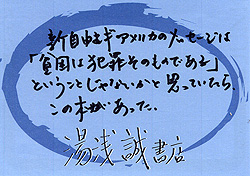 新自由主ギアメリカのメッセージは
「貧困は犯罪そのものである」
ということじゃないかと思っていたら、
この本があった。
湯浅誠書店